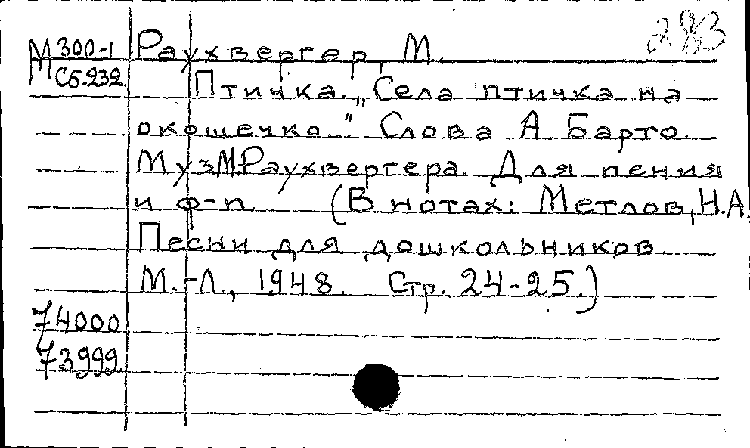 283
М300-1 Раухвергер, М.
М Сб.232 Птичка. „Села птичка на
окошечко..." Слова А Барто.
Муз М.Раухвергера. Для пения
и ф-п (В нотах: Метлов, Н.А.
Песни для дошкольников
М.-Л., 1948. Стр. 24-25.)
74000
73999